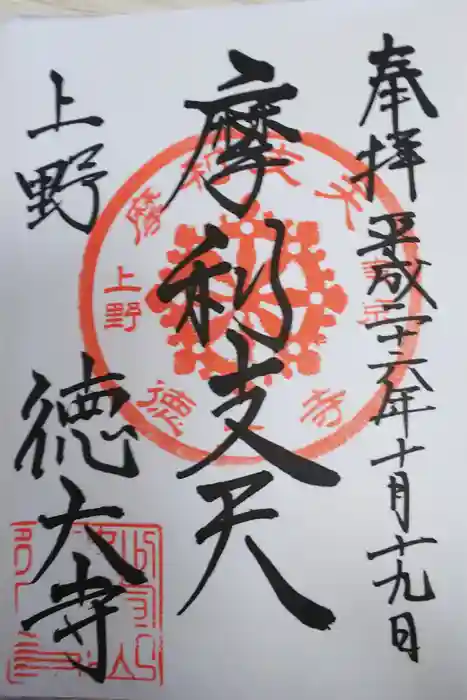 奉拝 平成二十六年十月十九日
摩利支天
上野 徳大寺
摩利支天
上野
徳大寺